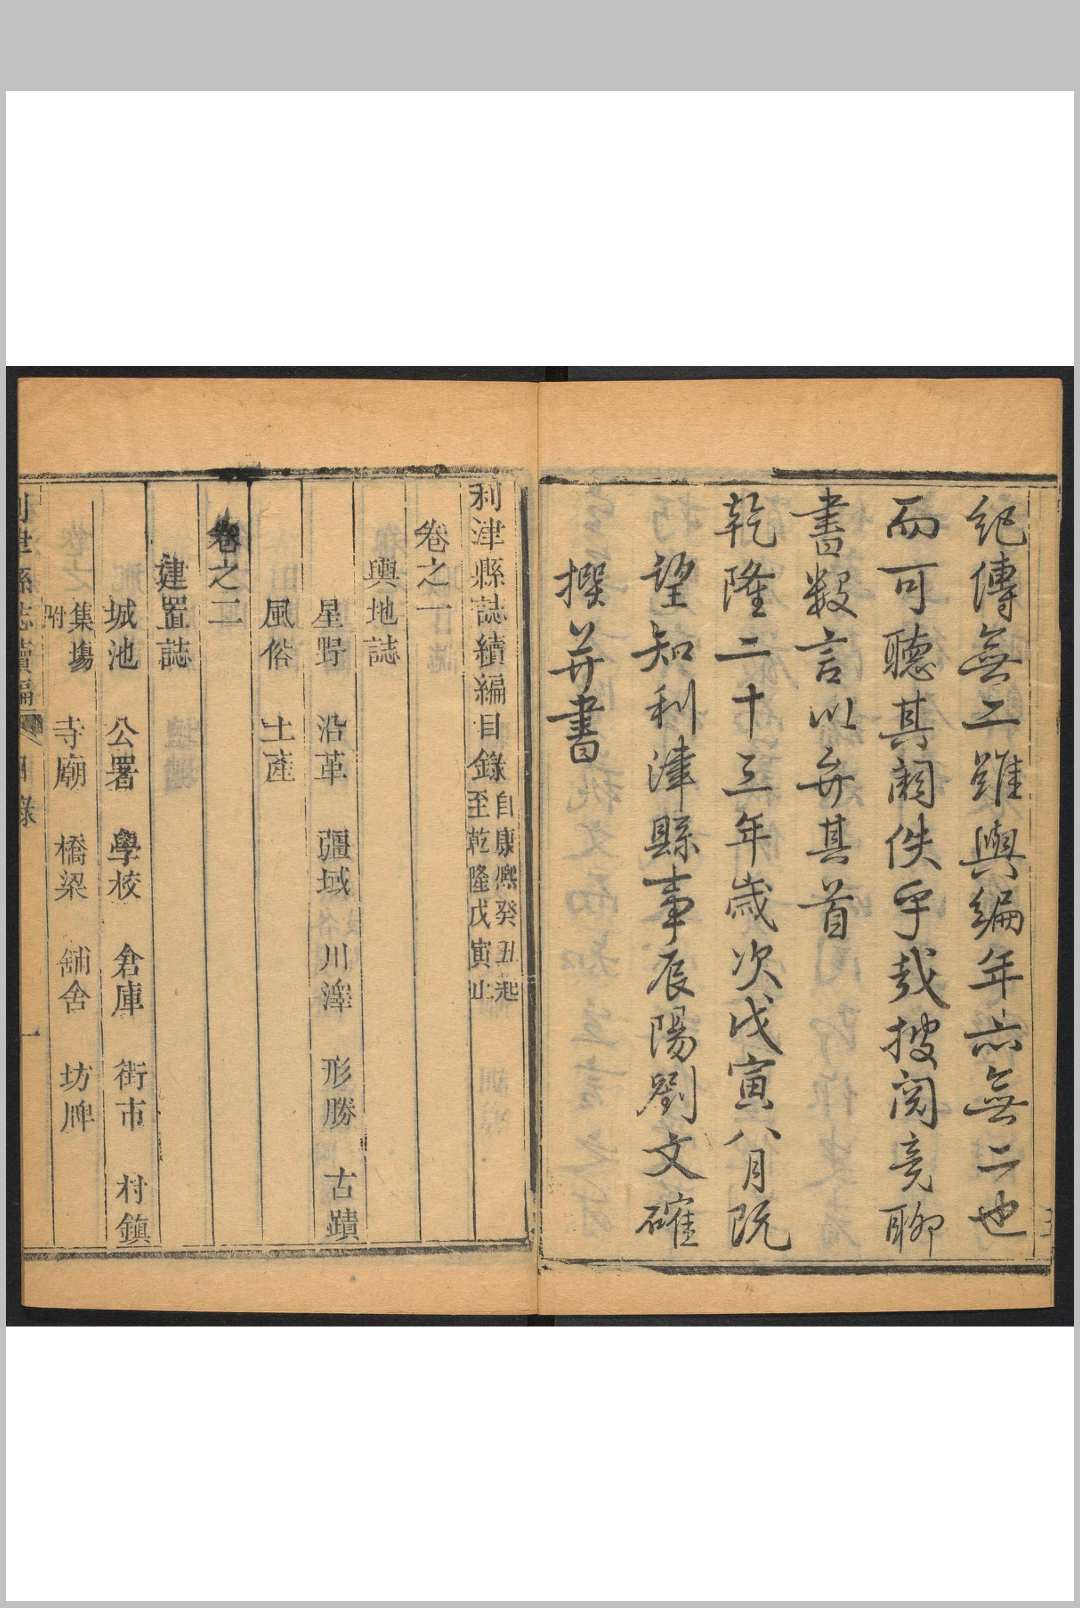 紀傳無二雖與編年亦無二也
而可聽其闕佚乎哉披閱竟聊
書數言以弁其首
乾隆二十三年歲次戊寅八月既
望知利津縣事辰陽劉文確
撰并書
利津縣誌續編目錄 自康熙癸丑起至乾隆戊寅止
卷之一
輿地誌
星野 沿革 疆域 川澤 形勝 古蹟
風俗 土產
卷之二
建置誌
城池 公署 學校 倉庫 街市 村鎮
集場附 寺廟 橋梁 舖舍 坊牌
利津縣志續編 目錄 一